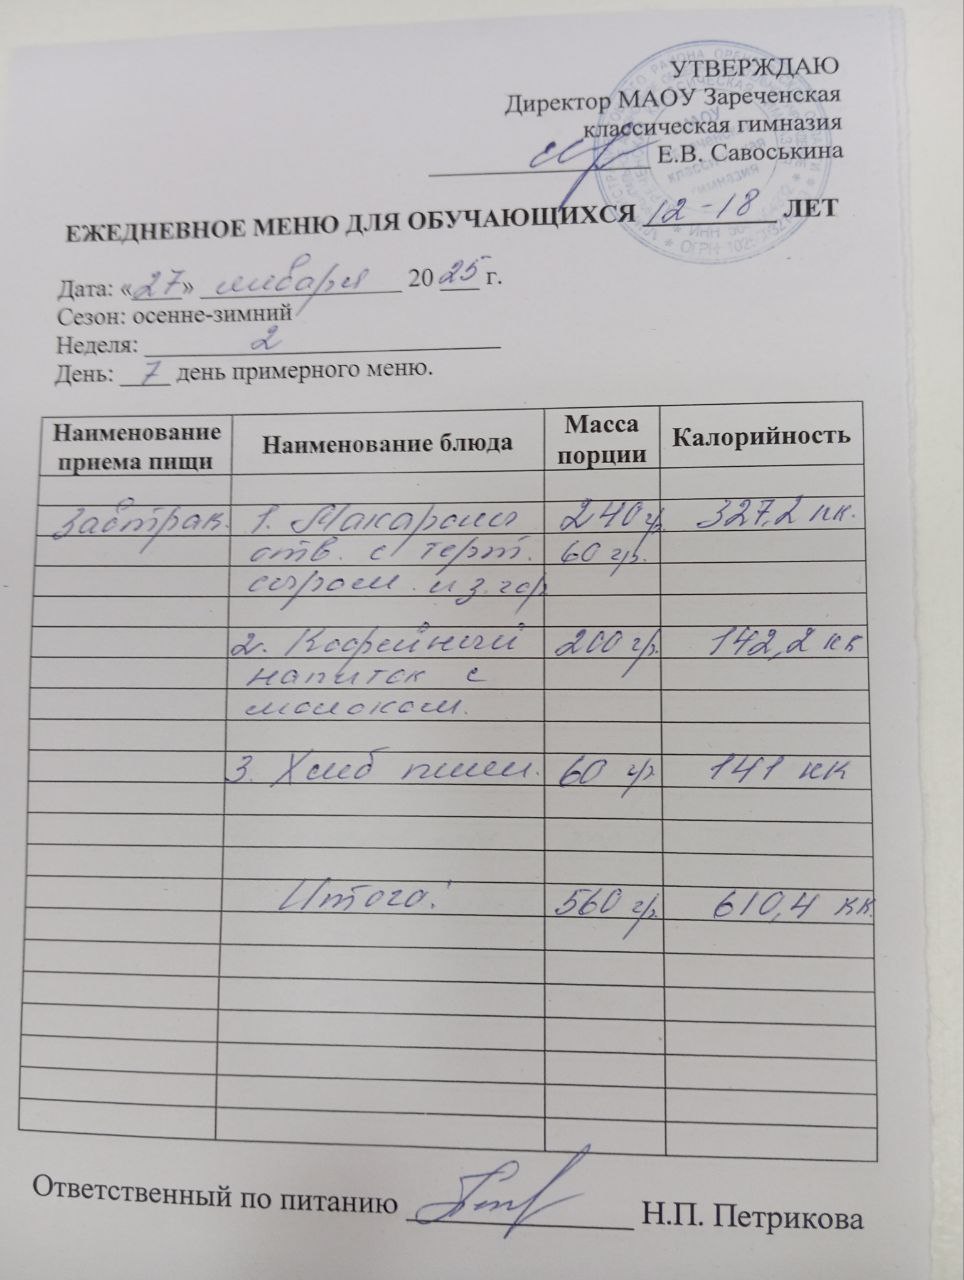 УТВЕРЖДАЮ
Директор МАОУ Зареченская
классическая гимназия
Е.В. Савоськина
ЕЖЕДНЕВНОЕ МЕНЮ ДЛЯ ОБУЧАЮЩИХСЯ 12-18 ЛЕТ
Дата: «27» января 2025 г.
Сезон: осенне-зимний
Неделя: 2
День: 7 день примерного меню.
Наименование приема пищи Наименование блюда Масса порции Калорийность
Завтрак. 1. Макароны 240 гр. 327,2 кк.
отв. с терт. 60 гр.
сыром. из. гор
2. Кофейный 200 гр. 142,2 кк
напиток с
молоком.
3. Хлеб пшен. 60 гр 141 кк
Итого: 560 гр. 610,4 кк.
Ответственный по питанию Н.П. Петрикова